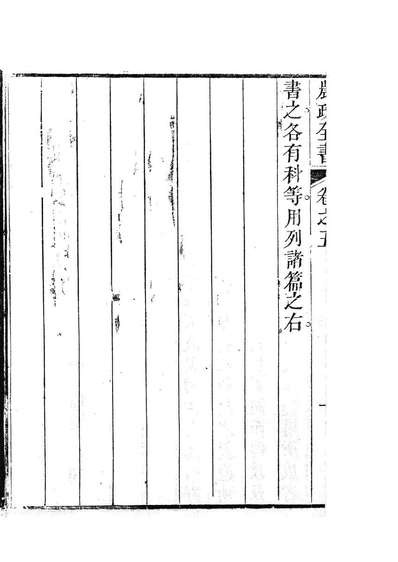 農政全書 卷之五
書之各有科等用列諸篇之右